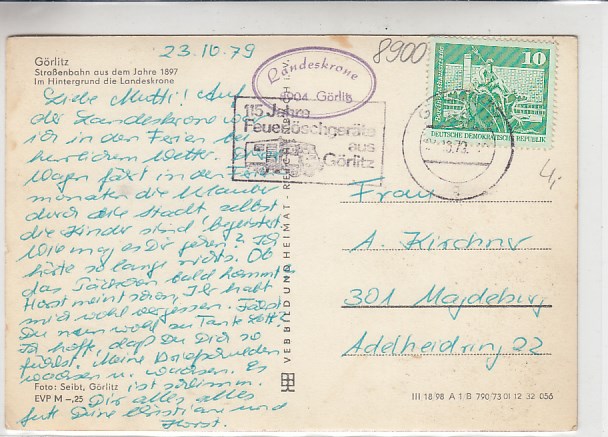 Görlitz
Straßenbahn aus dem Jahre 1897
Im Hintergrund die Landeskrone
23.10.79
Liebe Mutti! Auf
der Landeskrone war
ich in den Ferien bei
herrlichem Wetter.
Wagen fährt in den
monaten die Urlauber
durch die Stadt selbst
die Kinder sind begeistert
Wie mag es Dir gehen? Ich
hörte so lange nichts. Ob
das Päckchen bald kommt?
Horst meint schon, Ihr habt
mich wohl vergessen. Fährst
Du nun wohl zu Tante Lotte?
Ich hoffe, daß Du Dich so
fühlst. Meine Briefschulden
wachsen u. wachsen. Es
ist schlimm.
Dir alles alles
Gute Deine Christiane und
Horst.
Foto: Seibt, Görlitz
EVP M –,25
VEB BILD UND HEIMAT · REICHENBACH I. V.
Landeskrone
8904 Görlitz
115 Jahre
Feuerlöschgeräte
aus
Görlitz
8900
10
DEUTSCHE DEMOKRATISCHE REPUBLIK
Frau
A. Kirchner
301 Magdeburg
Adelheidring 22
III 18 98 A 1 B 790 73 01 12 32 056